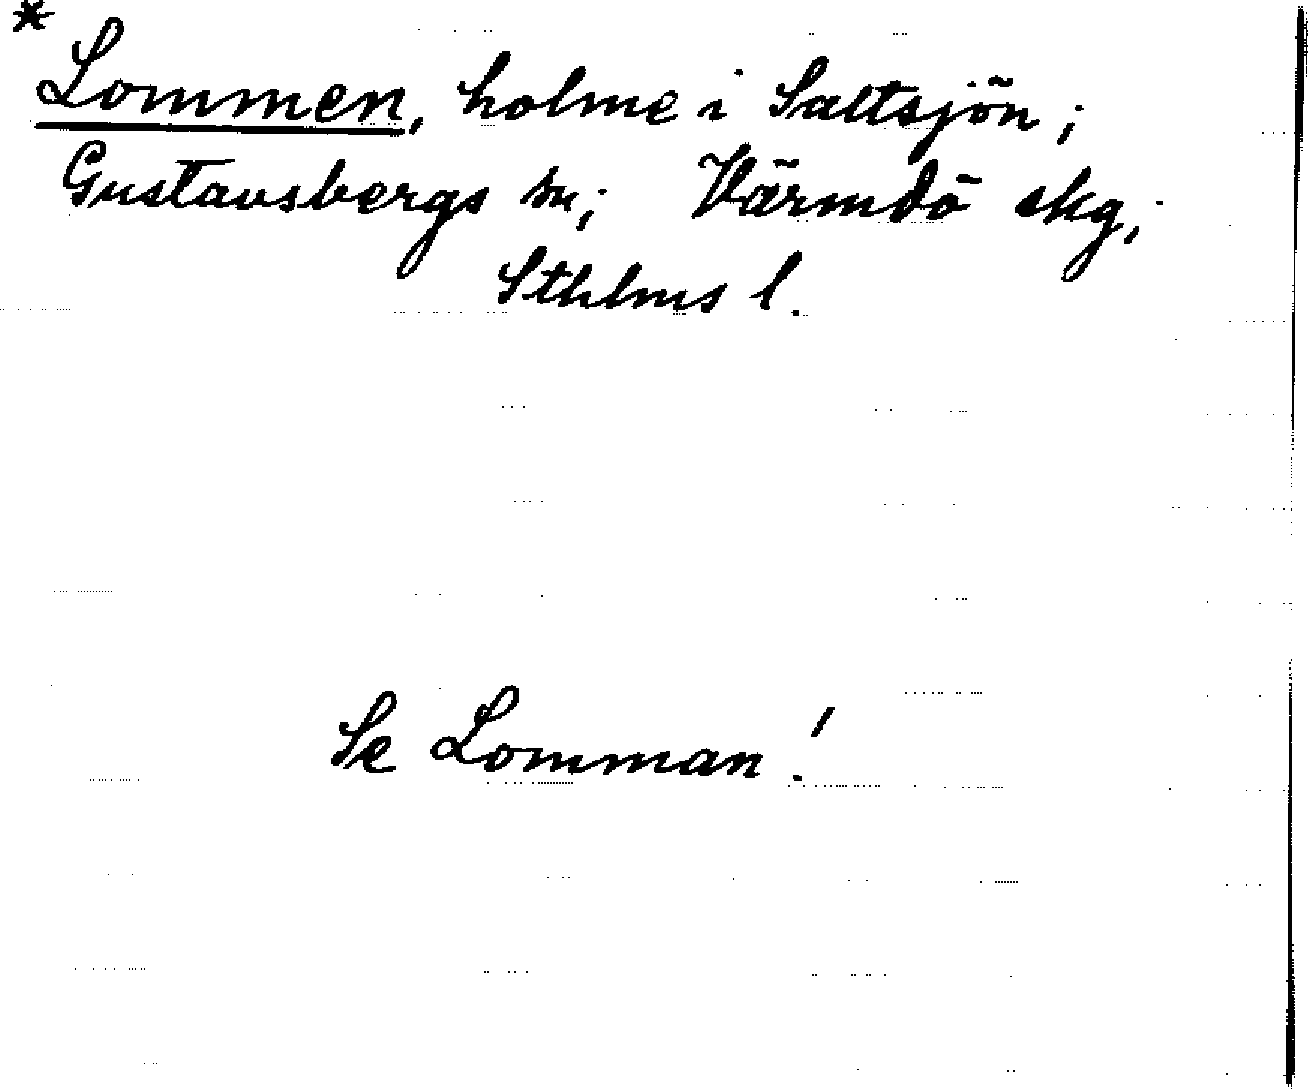 * Lommen, holme i Saltsjön;
Gustavsbergs sn; Värmdö skg;
Sthlms l.
Se Lomman!